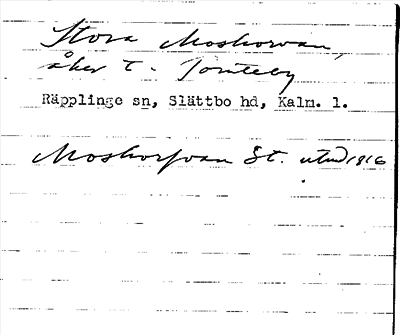 Stora Moskorvan,
åker t. Tomteby
Räpplinge sn, Slättbo hd, Kalm. l.
Moskorfvan St. utmd 1816